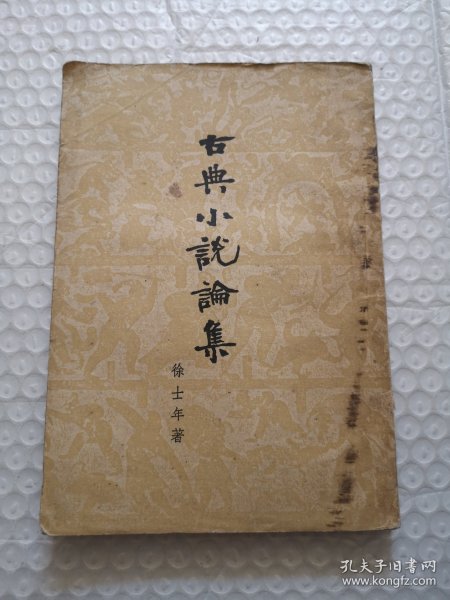 古典小說論集
徐士年著
孔夫子旧书网
www.kongfz.com